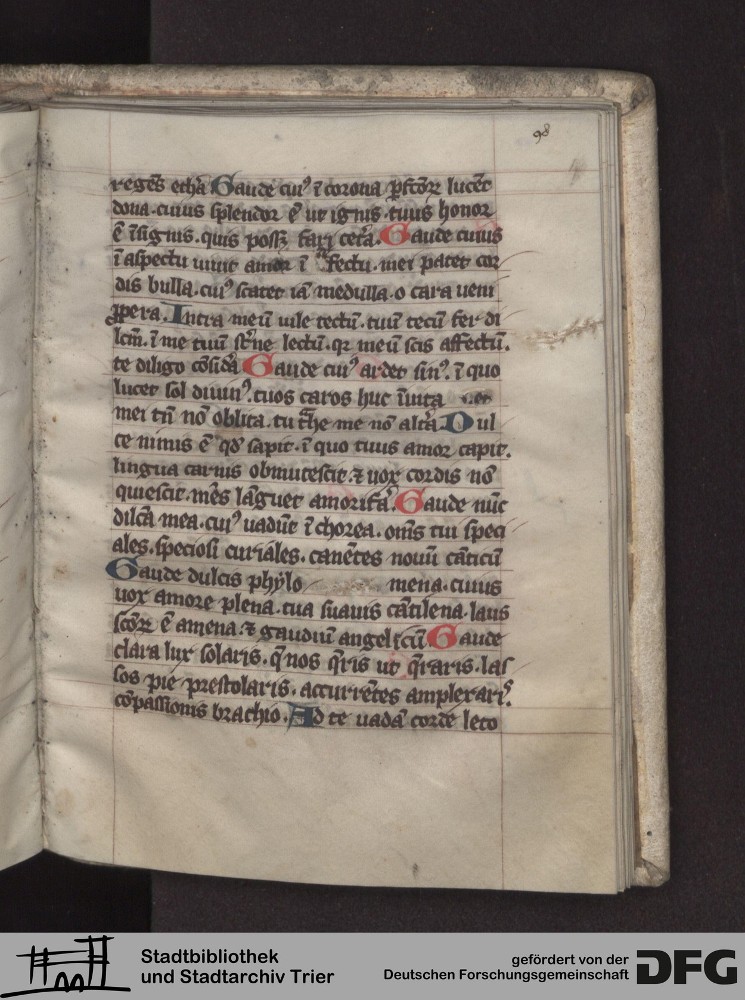 98
reges ethã Gaude cuiꝰ ĩ corona ꝑfcõꝝ lucẽt
dona. cuius splendor ẽ ut ignis. tuus honor
ẽ ĩsignis. quis possꝫ fari cetã. Gaude cuius
ĩ aspectu uiuit amor ĩ affectu. mei patet cor
dis bulla. cuiꝰ scatet iã medulla. o cara ueni
ꝓpera. Intra meũ uile tectũ. tuũ tecũ fer di
lcm̃. ĩ me tuũ st̃ne lectũ. qꝛ meũ scis affectũ.
te diligo cõsidã Gaude cuiꝰ ardet sinꝰ. ĩ quo
lucet sol diuinꝰ. tuos caros huc ĩuita
mei tñ nõ oblita. tu t̃he me nõ altã Dul
ce nimis ẽ qd̃ sapit. ĩ quo tuus amor capit.
lingua carnis obmutescit. ⁊ uox cordis nõ
quiescit. mẽs lãguet amorifã. Gaude nũc
dilcã mea. cuiꝰ uadũt ĩ chorea. oms̃ tui speci
ales. speciosi curiales. canẽtes nouũ cãticũ
Gaude dulcis phylo mena. cuius
uox amore plena. tua suauis cãtilena. laus
scõꝝ ẽ amena. ⁊ gaudiũ angelicũ Gaude
clara lux solaris. q̃ nos q̃ris ut q̃raris. las
sos pie prestolaris. accurrẽtes amplexarꝭ.
cõpassionis brachio. Ad te uadã corde leto
Stadtbibliothek
und Stadtarchiv Trier
gefördert von der
Deutschen Forschungsgemeinschaft
DFG